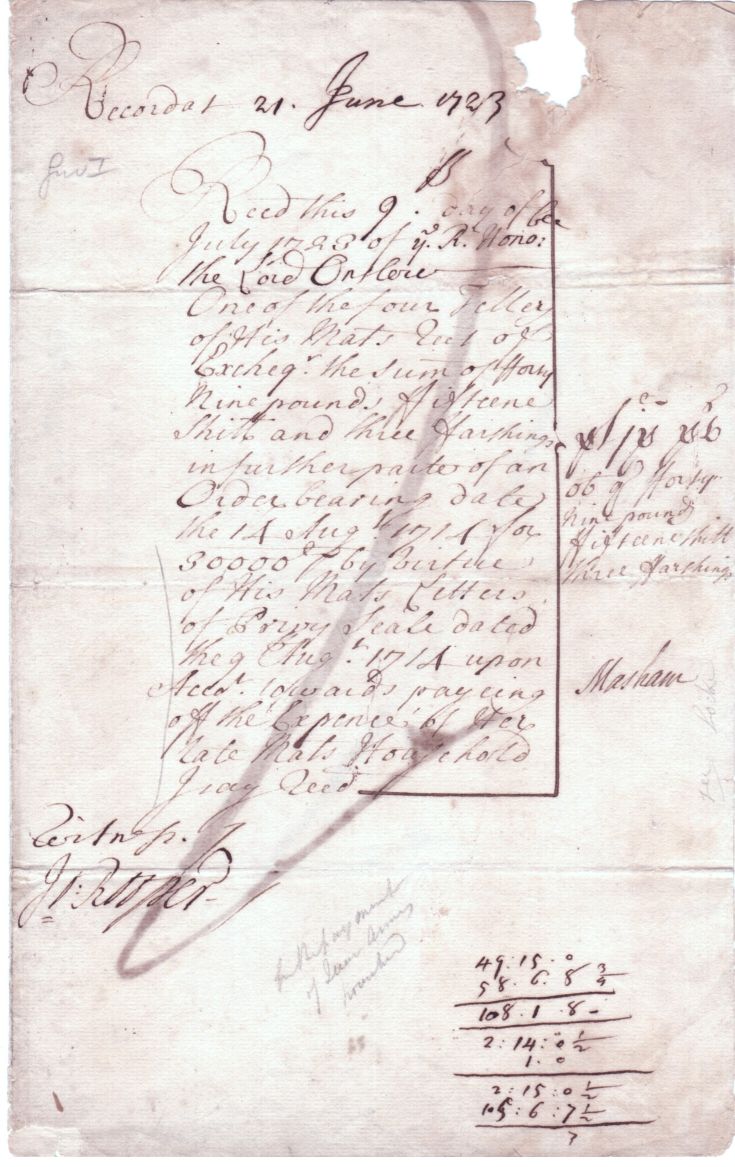 Recordat 21. June 1723
Recd this 9. day of
July 1723 of ye. R. Hono:
the Lord Onslow
One of the four Tellers
of His Mats Rect of
Excheqr. the sum of fforty
Nine pounds ffifteene
Shill and three ffarthings
in further parte of an
Order bearing date
the 14 Augt. 1714 for
30000 by Virtue
of His Mats Letters
of Privy Seale dated
the 9 Augt. 1714 upon
Accot. towards payeing
off the Expence of Her
late Mats Household
I say Recd
ob q fforty
Nine pounds
ffifteene shill
three ffarthings
Masham
Witness.
Jt: Roper
Repayment
of Queen Annes
household
49:15:0
58.6.8 3/4
108.1.8-
2:14:0 1/2
1.0
2:15:0 1/2
105:6:7 1/2